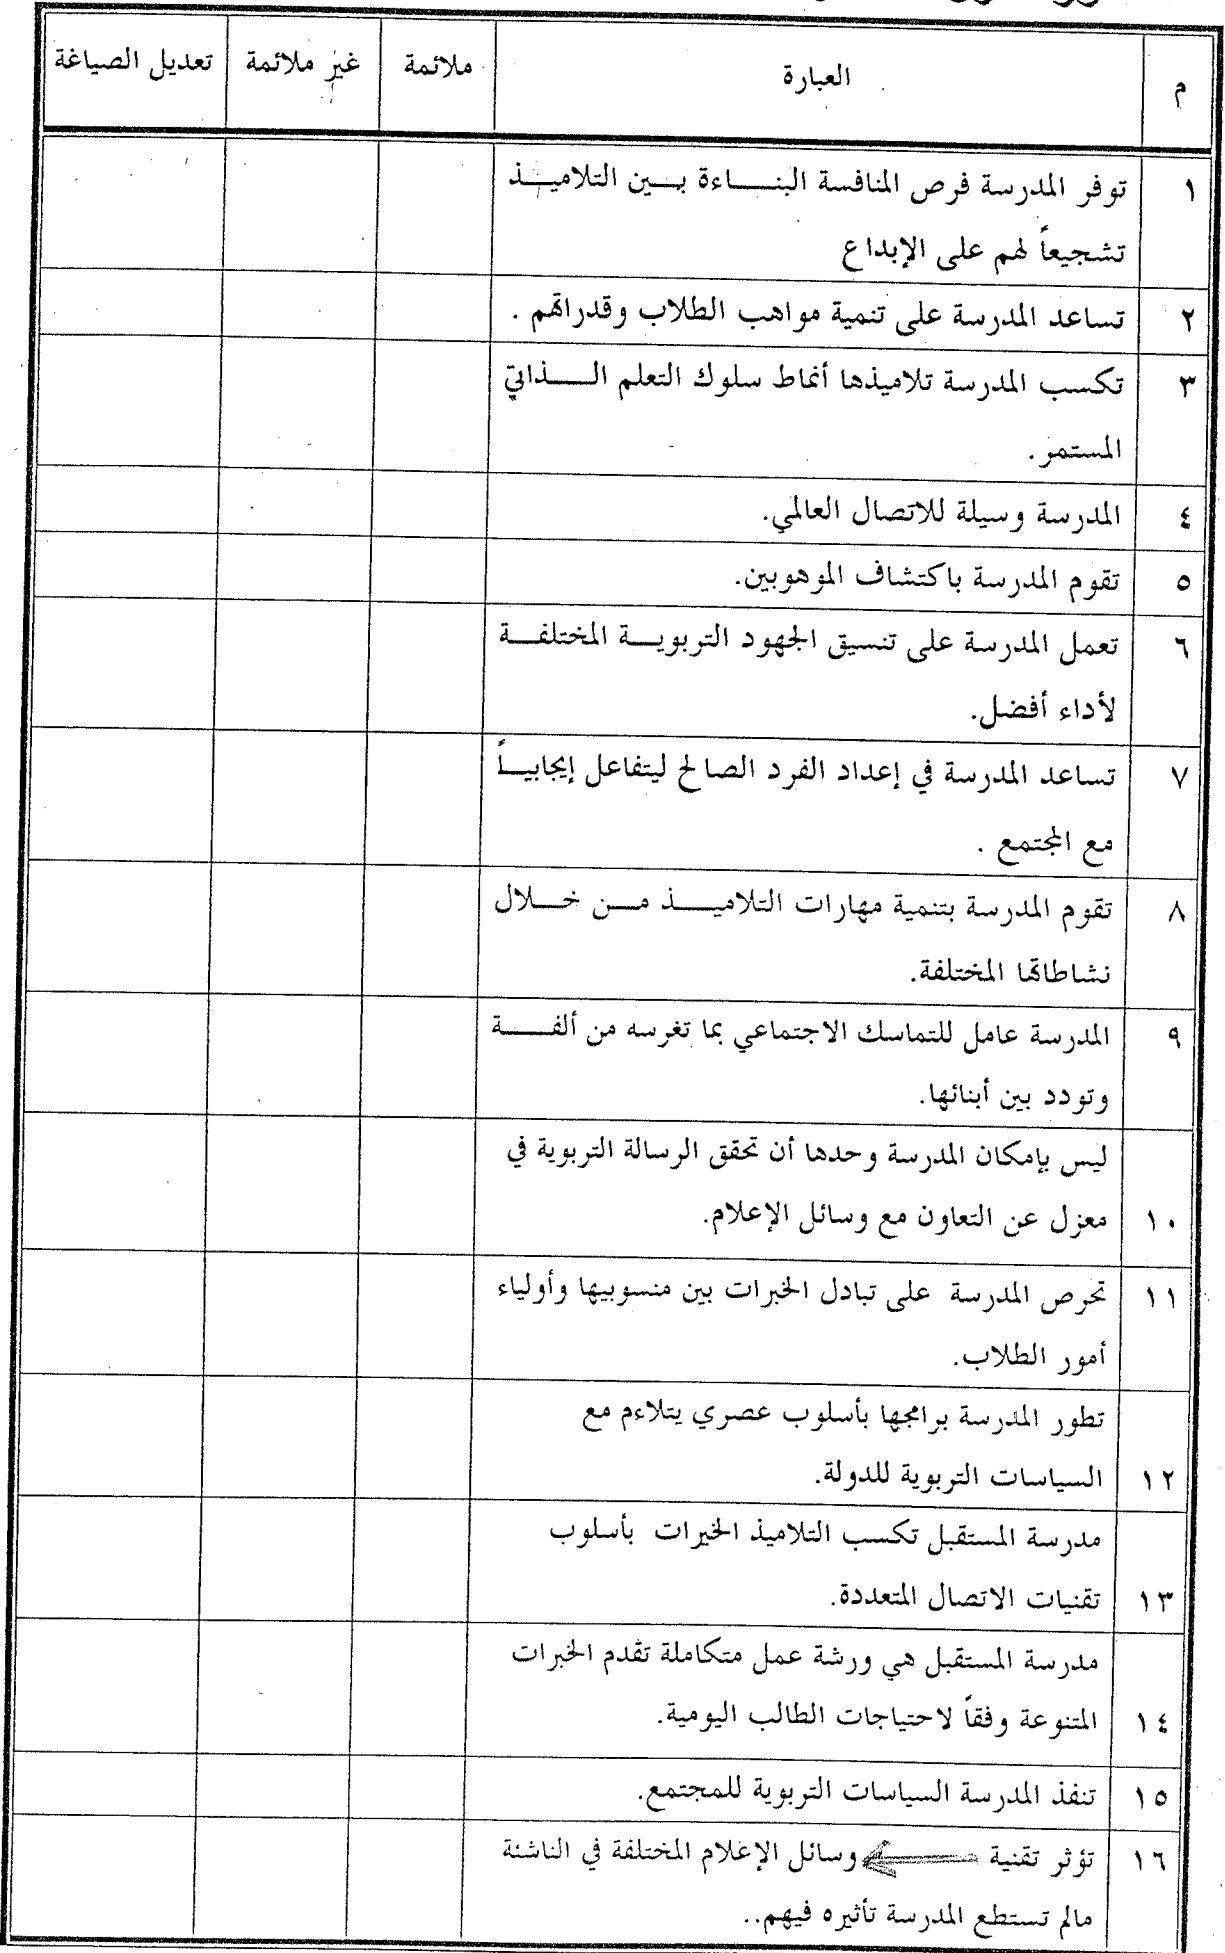 م العبارة ملائمة غير ملائمة تعديل الصياغة
١ توفر المدرسة فرص المنافسة البناءة بين التلاميذ
تشجيعاً لهم على الإبداع
٢ تساعد المدرسة على تنمية مواهب الطلاب وقدراتهم .
٣ تكسب المدرسة تلاميذها أنماط سلوك التعلم الذاتي
المستمر .
٤ المدرسة وسيلة للاتصال العالمي.
٥ تقوم المدرسة باكتشاف الموهوبين.
٦ تعمل المدرسة على تنسيق الجهود التربوية المختلفة
لأداء أفضل.
٧ تساعد المدرسة في إعداد الفرد الصالح ليتفاعل إيجابياً
مع المجتمع .
٨ تقوم المدرسة بتنمية مهارات التلاميذ من خلال
نشاطاتها المختلفة.
٩ المدرسة عامل للتماسك الاجتماعي بما تغرسه من ألفة
وتودد بين أبنائها.
ليس بإمكان المدرسة وحدها أن تحقق الرسالة التربوية في
١٠ معزل عن التعاون مع وسائل الإعلام.
١١ تحرص المدرسة على تبادل الخبرات بين منسوبيها وأولياء
أمور الطلاب.
تطور المدرسة برامجها بأسلوب عصري يتلاءم مع
١٢ السياسات التربوية للدولة.
مدرسة المستقبل تكسب التلاميذ الخبرات بأسلوب
١٣ تقنيات الاتصال المتعددة.
مدرسة المستقبل هي ورشة عمل متكاملة تقدم الخبرات
١٤ المتنوعة وفقاً لاحتياجات الطالب اليومية.
١٥ تنفذ المدرسة السياسات التربوية للمجتمع.
١٦ تؤثر تقنية وسائل الإعلام المختلفة في الناشئة
مالم تستطع المدرسة تأثيره فيهم..